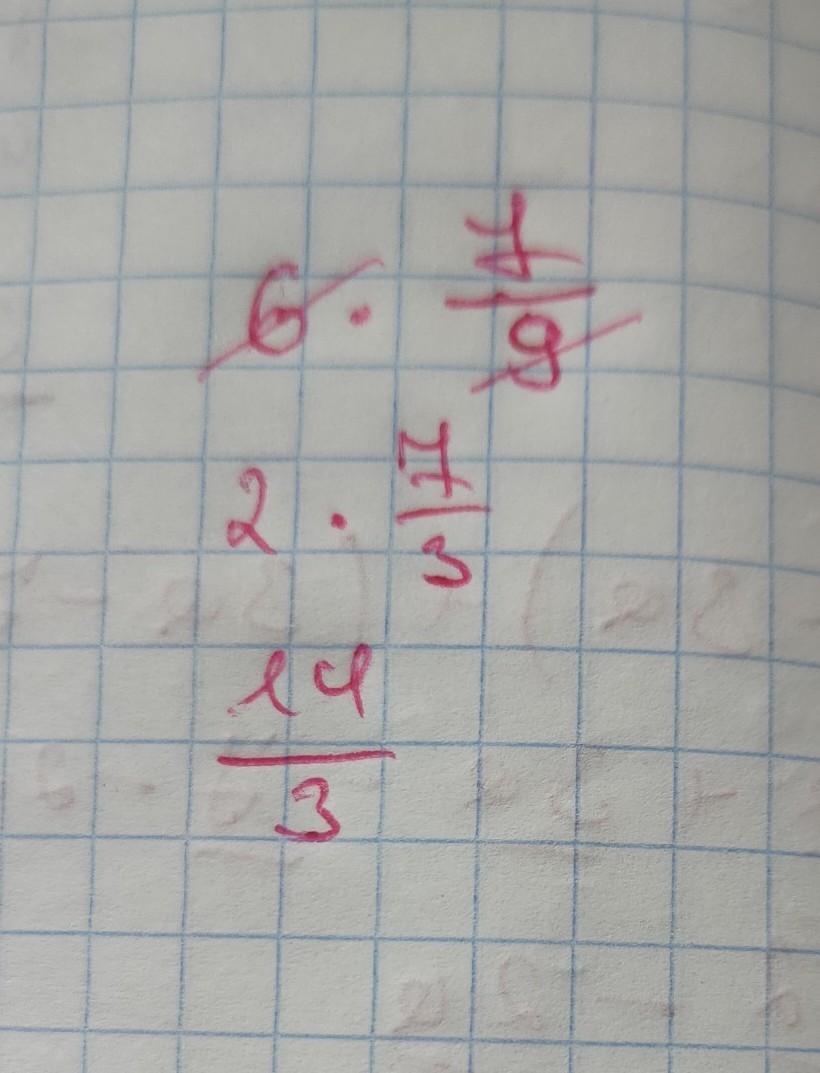 6 · 7/9
2 · 7/3
14/3